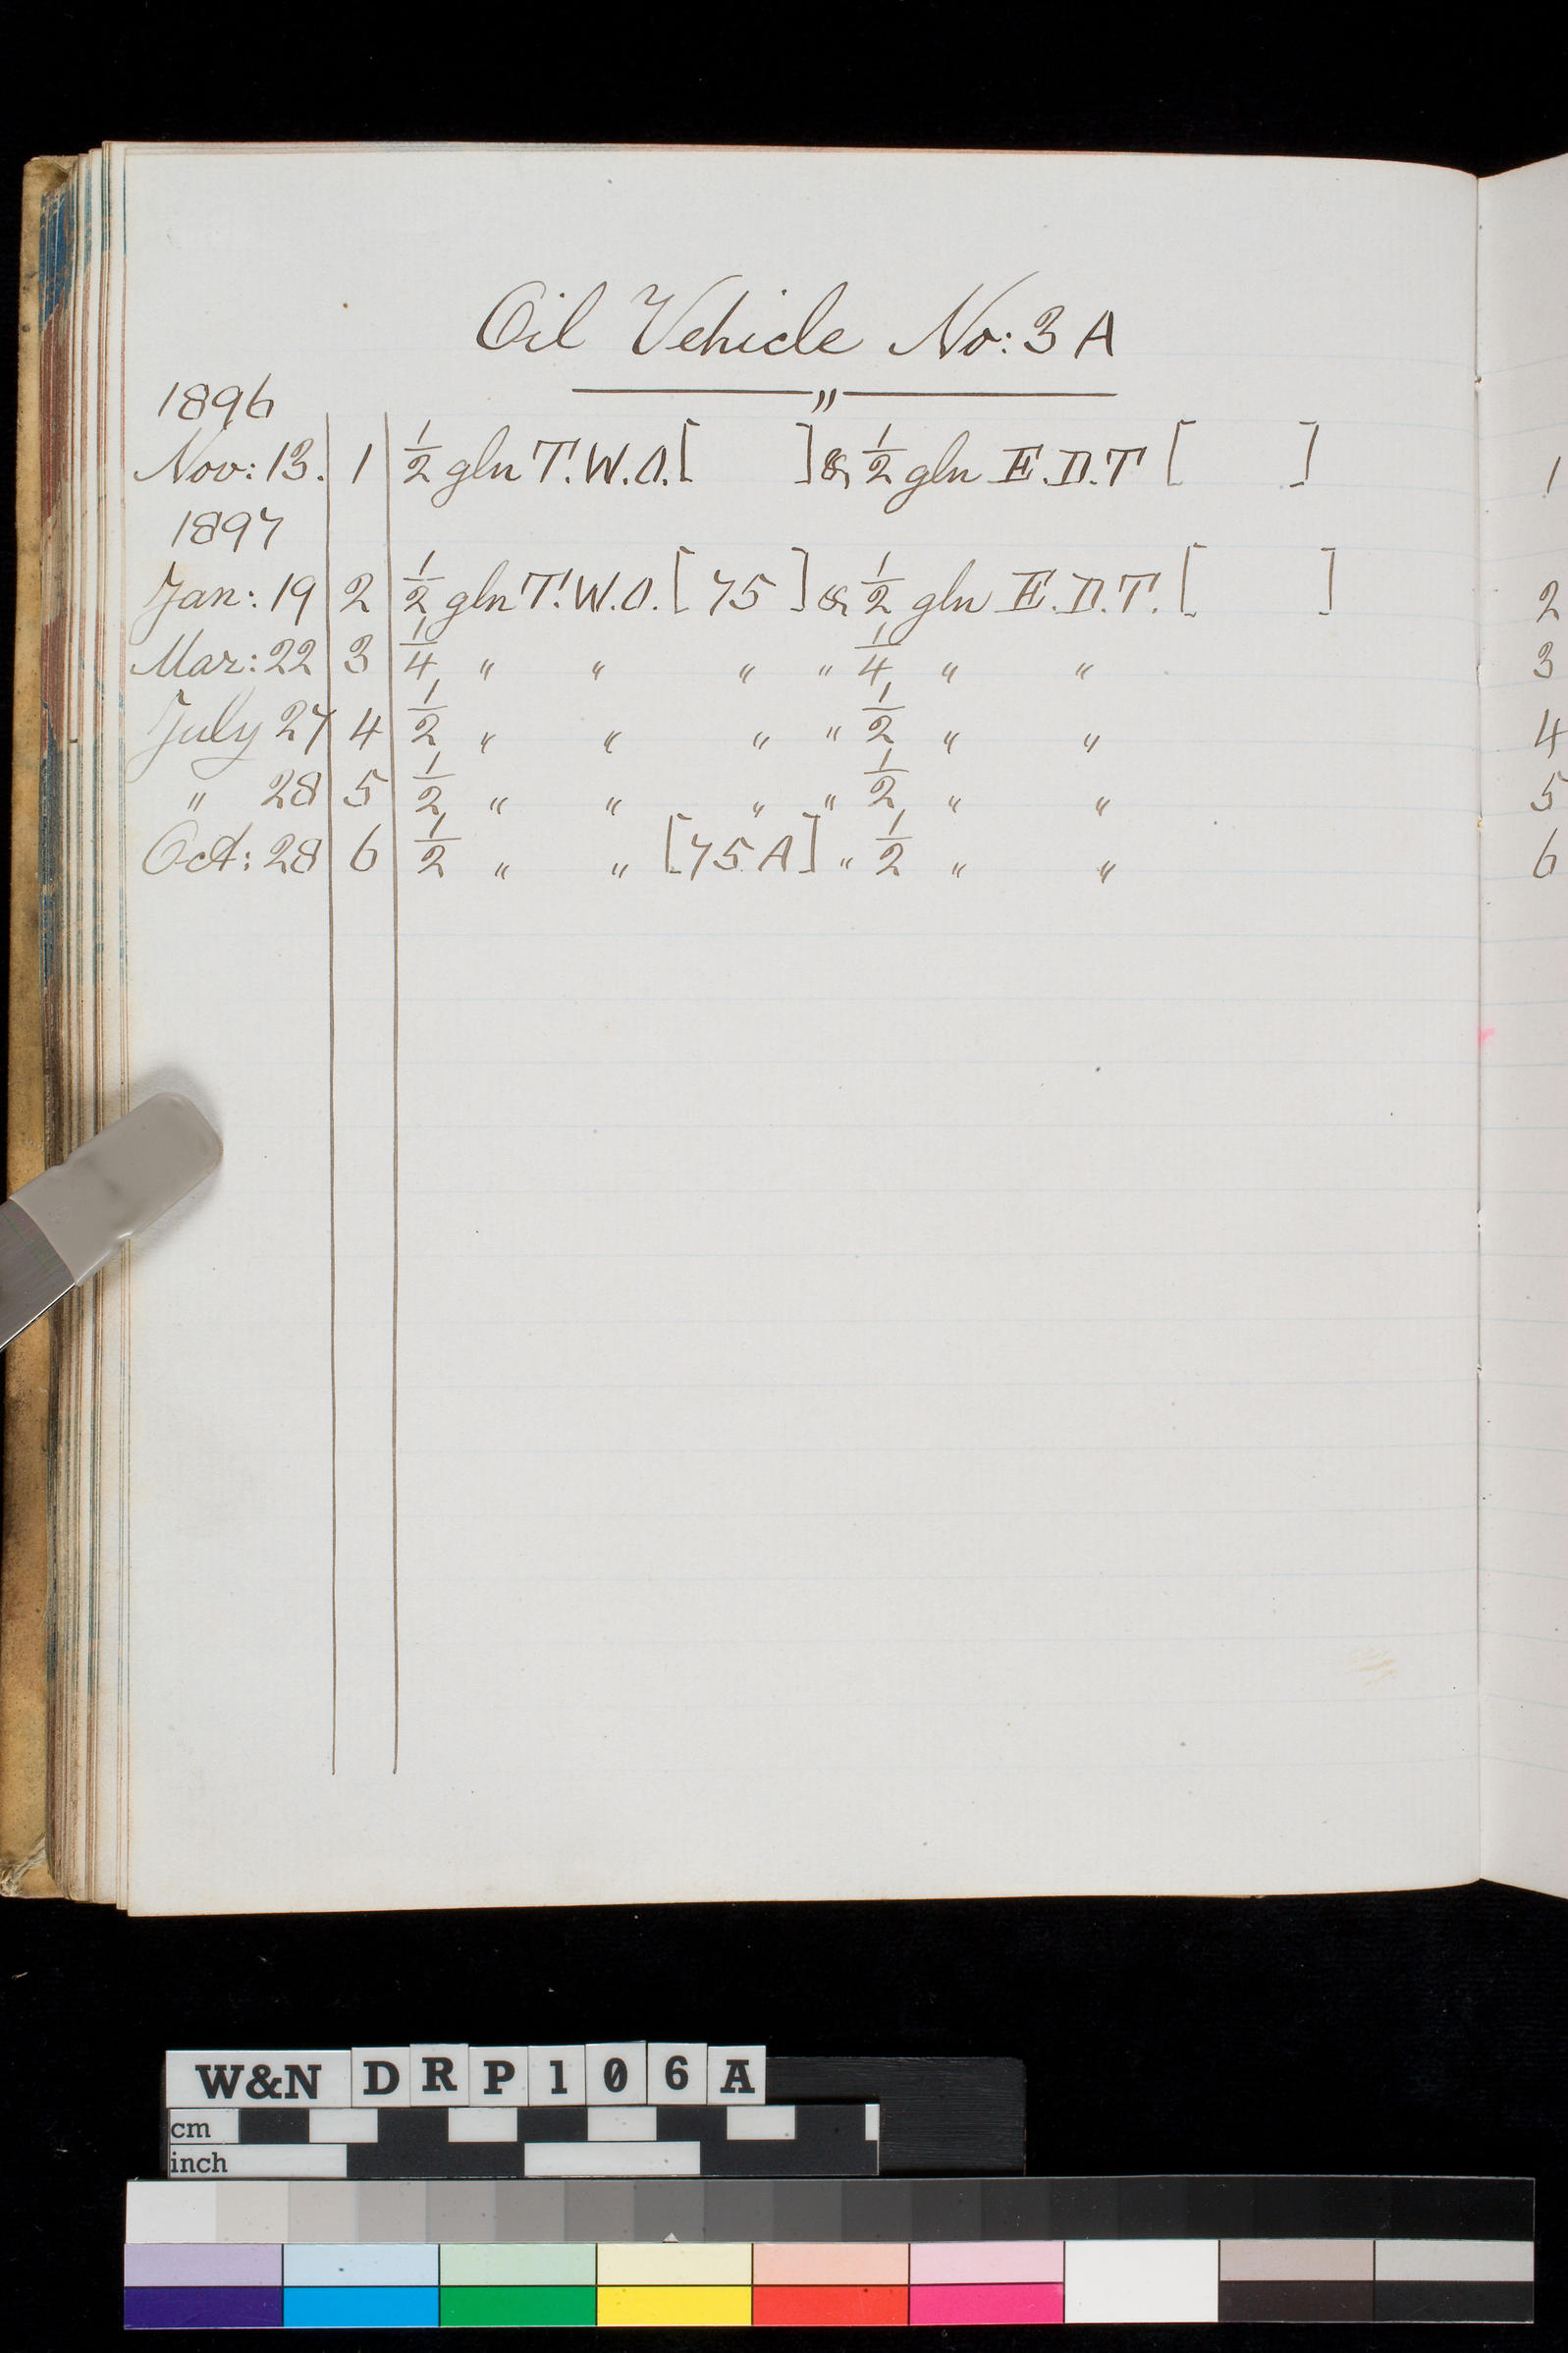 Oil Vehicle No: 3 A
1896
Nov: 13. 1 ½ gln T.W.O. [ ] & ½ gln E.D.T [ ] 1
1897
Jan: 19 2 ½ gln T.W.O. [ 75 ] & ½ gln E.D.T. [ ] 2
Mar: 22 3 ¼ " " " " ¼ " " 3
July 27 4 ½ " " " " ½ " " 4
" 28 5 ½ " " " " ½ " " 5
Oct: 28 6 ½ " " [75 A] " ½ " " 6
W&N DRP106A
cm
inch